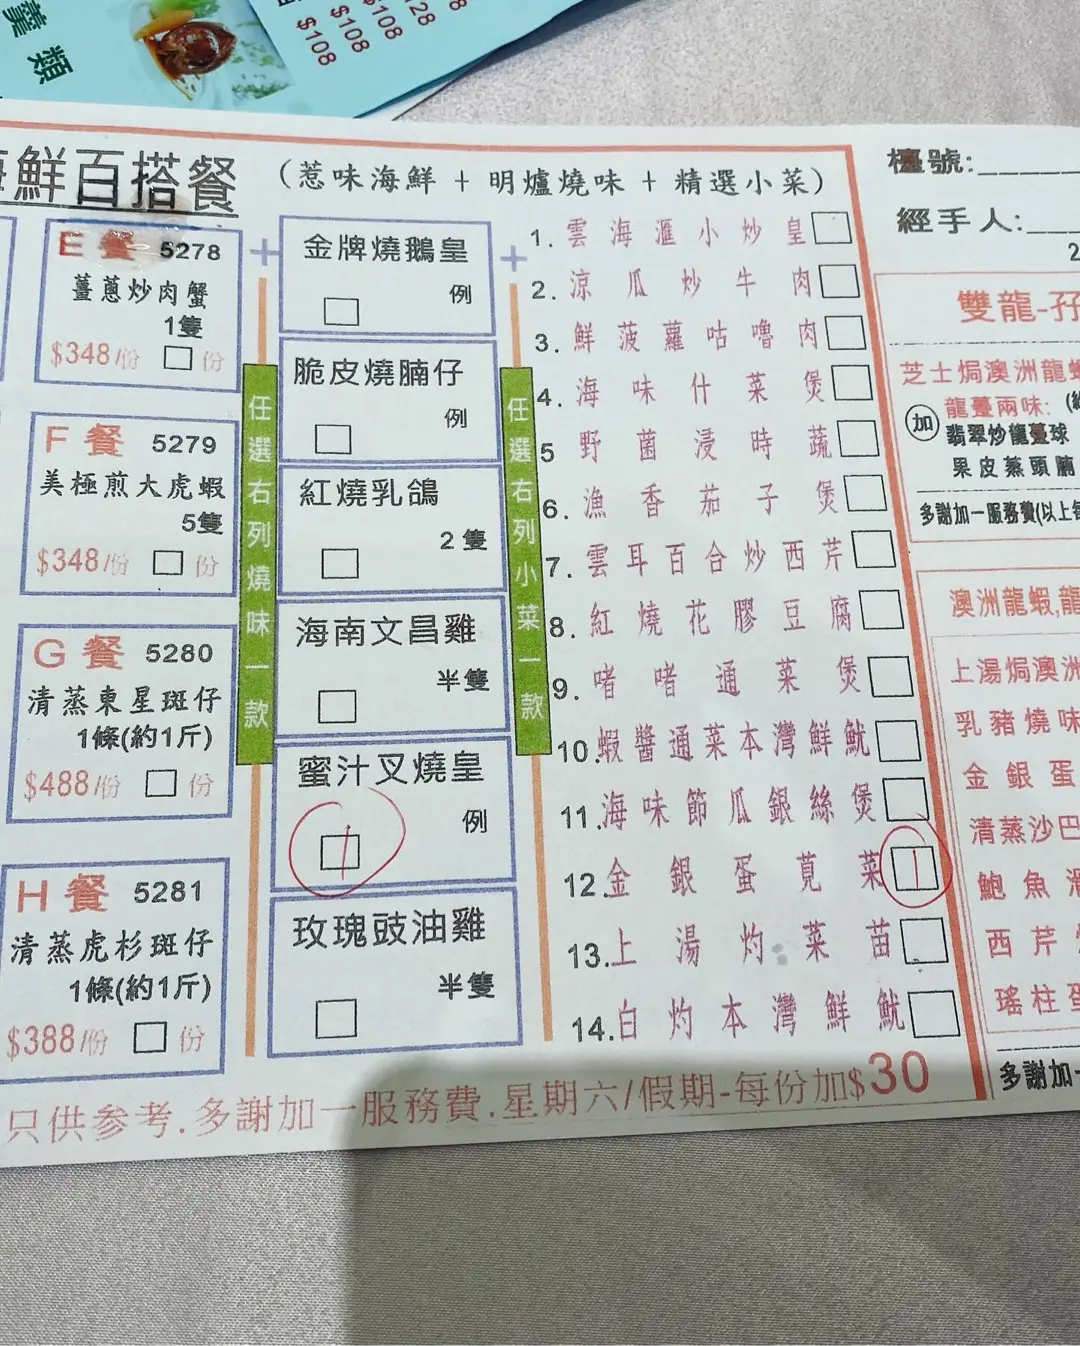 羹類
$108
$108
$108
128
8
鮮百搭餐 (惹味海鮮 + 明爐燒味 + 精選小菜)
E 餐 5278
薑蔥炒肉蟹
1隻
$348/份 份
F 餐 5279
美極煎大虎蝦
5隻
$348/份 份
G 餐 5280
清蒸東星斑仔
1條(約1斤)
$488/份 份
H 餐 5281
清蒸虎杉斑仔
1條(約1斤)
$388/份 份
+
任選右列燒味一款
金牌燒鵝皇
例
脆皮燒腩仔
例
紅燒乳鴿
2隻
海南文昌雞
半隻
蜜汁叉燒皇
例
玫瑰豉油雞
半隻
+
任選右列小菜一款
1. 雲海滙小炒皇
2. 涼瓜炒牛肉
3. 鮮菠蘿咕嚕肉
4. 海味什菜煲
5 野菌浸時蔬
6. 漁香茄子煲
7. 雲耳百合炒西芹
8. 紅燒花膠豆腐
9. 啫啫通菜煲
10. 蝦醬通菜本灣鮮魷
11. 海味節瓜銀絲煲
12. 金銀蛋莧菜
13. 上湯灼菜苗
14. 白灼本灣鮮魷
只供参考.多謝加一服務費.星期六/假期-每份加$30
檯號:
經手人:
2
雙龍-孖
芝士焗澳洲龍
加
龍躉兩味:
翡翠炒龍躉球
果皮蒸頭腩
多謝加一服務費(以上每
澳洲龍蝦,龍
上湯焗澳洲
乳豬燒味
金銀蛋
清蒸沙巴
鮑魚
西芹
瑤柱蛋
多謝加一